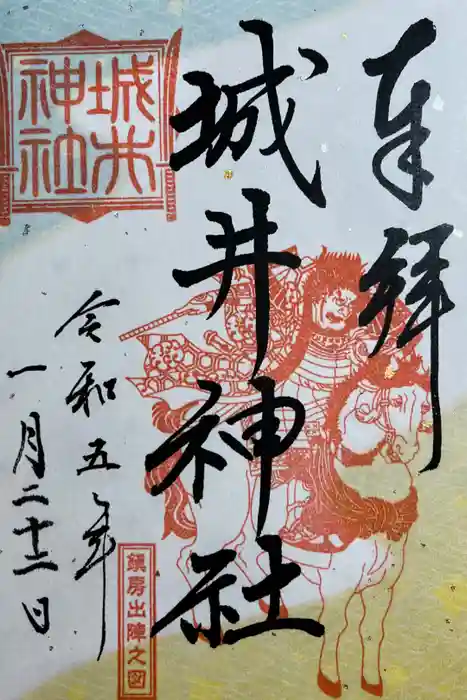 奉拝
城井神社
令和五年
一月二十二日
城井
神社
鎮房出陣之図